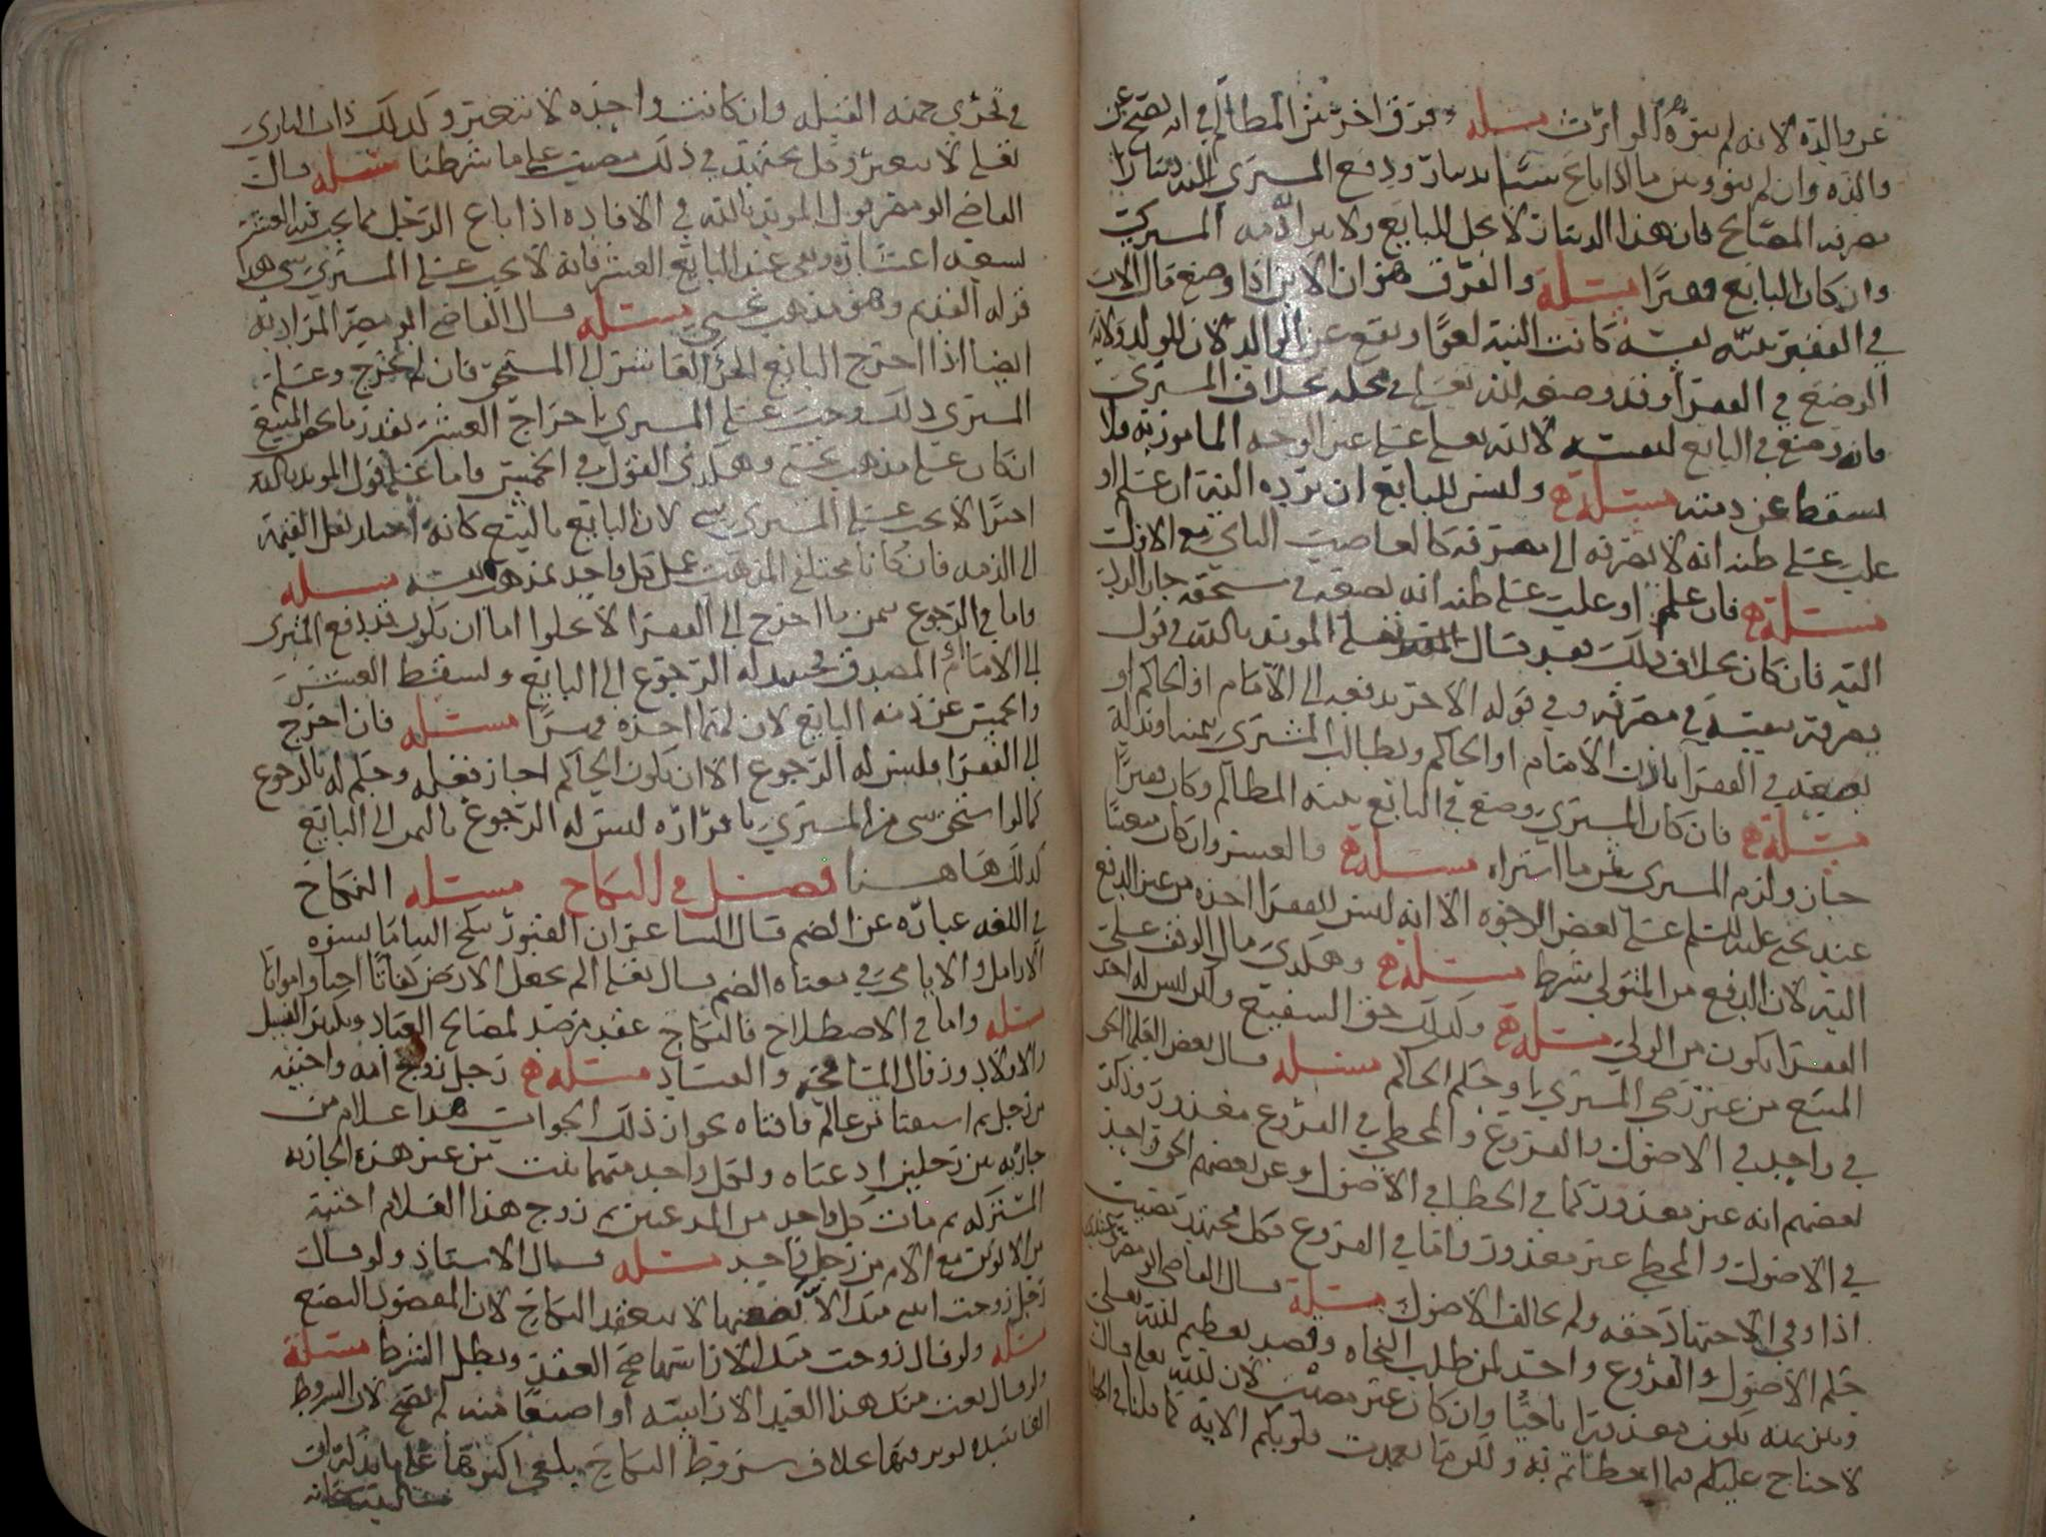 عن والده لانه لم ينوه الوارث مسئله وفرق اخر بين المظالم في انه تصح عن
والده وان لم ينو وبين ما اذا باع شيئا بدينار ودفع المشتري اليه دينارا
مصرفه المصالح فان هذا الدينار لا يحل للبايع ولا يبرا ذمه المشتري
وان كان البايع فقيرا مسئلة والفرق هو ان الابن اذا وضع مال الاب
في الفقير بنيته نفسه كانت النية لغوا ويقع عن الوالد لان للولد ولاية
الوضع في الفقرا وقد وضعه الله تعالى في محله بخلاف المشتري
فانه وضع في البايع لنفسه لا لله تعلى على غير الوجه المامور به فلا
يسقط عن ذمته مسئلة وليس للبايع ان يرده اليه ان علم او
غلب على ظنه انه لا يصرفه الى مصرفه كالغاصب الثاني مع الاول
مسئلة فان علم او غلب على ظنه انه يضعه في مستحقه جاز الرد
اليه فان كان بخلاف ذلك فقد قال المويد بالله في قول
يصرفه بنفسه في مصرفه وفي قوله الاخر يدفعه الى الامام او الحاكم او
يضعه في الفقرا باذن الامام او الحاكم ويطالب المشتري بثمنه
مسئلة فان كان المشتري وضع في البايع بنيه المظالم وكان فقيرا
جاز ولزم المشتري ثمن ما اشتراه مسئلة والعشر وان كان معينا
عند يحيى عليه السلم على بعض الوجوه الا انه ليس للفقرا اخذه من غير الدفع
اليه لان الدفع من المتولي شرط مسئلة وهكذى مال الوقف على
الفقرا يكون من الولي مسئلة وكذلك حق الشفيع ولكن ليس له اخذ
المبيع من غير رضى المشتري او حكم الحاكم مسئله قال بعض العلما الحق
في واحد في الاصول والفروع والمخطي في الفروع معذور وذكر
بعضهم انه غير معذور كما في الخطا في الاصول وعن بعضهم الحق واحد
في الاصول والمخطي غير معذور واما في الفروع فكل مجتهد مصيب
اذا وفى الاجتهاد حقه ولم يخالف الاصول مسئلة قال القاضي ابو مضر وعندي
حكم الاصول والفروع واحد لمن طلب النجاه وقصد تعظيم لله تعلى
ومن منه يكون معذورا ناجيا وان كان غير مصيب لان لله تعلى قال
لا جناح عليكم فيما اخطاتم به ولكن ما تعمدت قلوبكم الاية كما قلنا في
في تحري جهه القبله وان كانت واحده لا تتغير وكذلك ذات الباري
تعلى لا تتغير وكل مجتهد في ذلك مصيب على ما شرطنا مسئله قال
القاضي ابو مضر قول المويد بالله في الافاده اذا باع الرجل مما يجب فيه العشر
تسعه اعشاره وبقي عند البايع العشر فانه لا يجب على المشتري شي هذا
قوله القديم وهو مذهب يحيى مسئله قال القاضي ابو مضر المراد به
ايضا اذا اخرج البايع الجزء العاشر الى المستحق فان لم يخرج وعلم
المشتري ذلك وجب على المشتري اخراج العشر بقدر ما يخص المبيع
ان كان على مذهب يحيى وهكذى القول في الخمس واما على قول المويد بالله
اخيرا لا يجب على المشتري شي لان البايع بالبيع كانه اختار نقل القيمة
الى الذمه فان كانا مختلفي المذهب عمل كل واحد بمذهب نفسه مسئله
واما في الرجوع بثمن ما اخرج الى الفقرا لا يخلوا اما ان يكون قد دفع المشتري
الى الامام او المصدق فحينئذ له الرجوع الى البايع ويسقط العشر
والخمس عن ذمه البايع لان لهما اخذه قهرا مسئله فان اخرج
الى الفقرا فليس له الرجوع الا ان يكون الحاكم اجاز فعله وحكم له بالرجوع
كما لو استحق شي من المشتري باقراره ليس له الرجوع بالثمن الى البايع
كذلك هاهنا فصل في النكاح مسئله النكاح
في اللغه عباره عن الضم قال الشاعر ان القبور تنكح الايامى النسوه
الارامل والايامى وفي معناه الضم قال تعلى الم نجعل الارض كفاتا احيا وامواتا
مسئله واما في الاصطلاح فالنكاح عقد مرصد لمصالح العباد وتكثير النسل
والاولاد وزوال المشاجره والفساد مسئله رجل زوج امه واخته
من رجل ثم استفتا من عالم فافتاه بجواز ذلك الجواب هذا غلام من
جاريه بين رجلين ادعياه ولكل واحد منهما بنت من غير هذه الجاريه
المشتركه ثم مات كل واحد من المدعيين ثم زوج هذا الغلام اخته
من الابوين مع الام من رجل واحد مسئله قال الاستاذ ولو قال
رجل زوجت ابنتي منك الا بضعها لا ينعقد النكاح لان المقصود البضع
مسئله ولو قال زوجت منك الا لسانها صح العقد وبطل الشرط مسئلة
ولو قال بعت منك هذا العبد الا راسه او اصبعا منه لم يصح لان الشروط
الفاسده توثر فيها بخلاف شروط النكاح يلغى اكثرها على ما يذكر ان
شا الله سبحانه